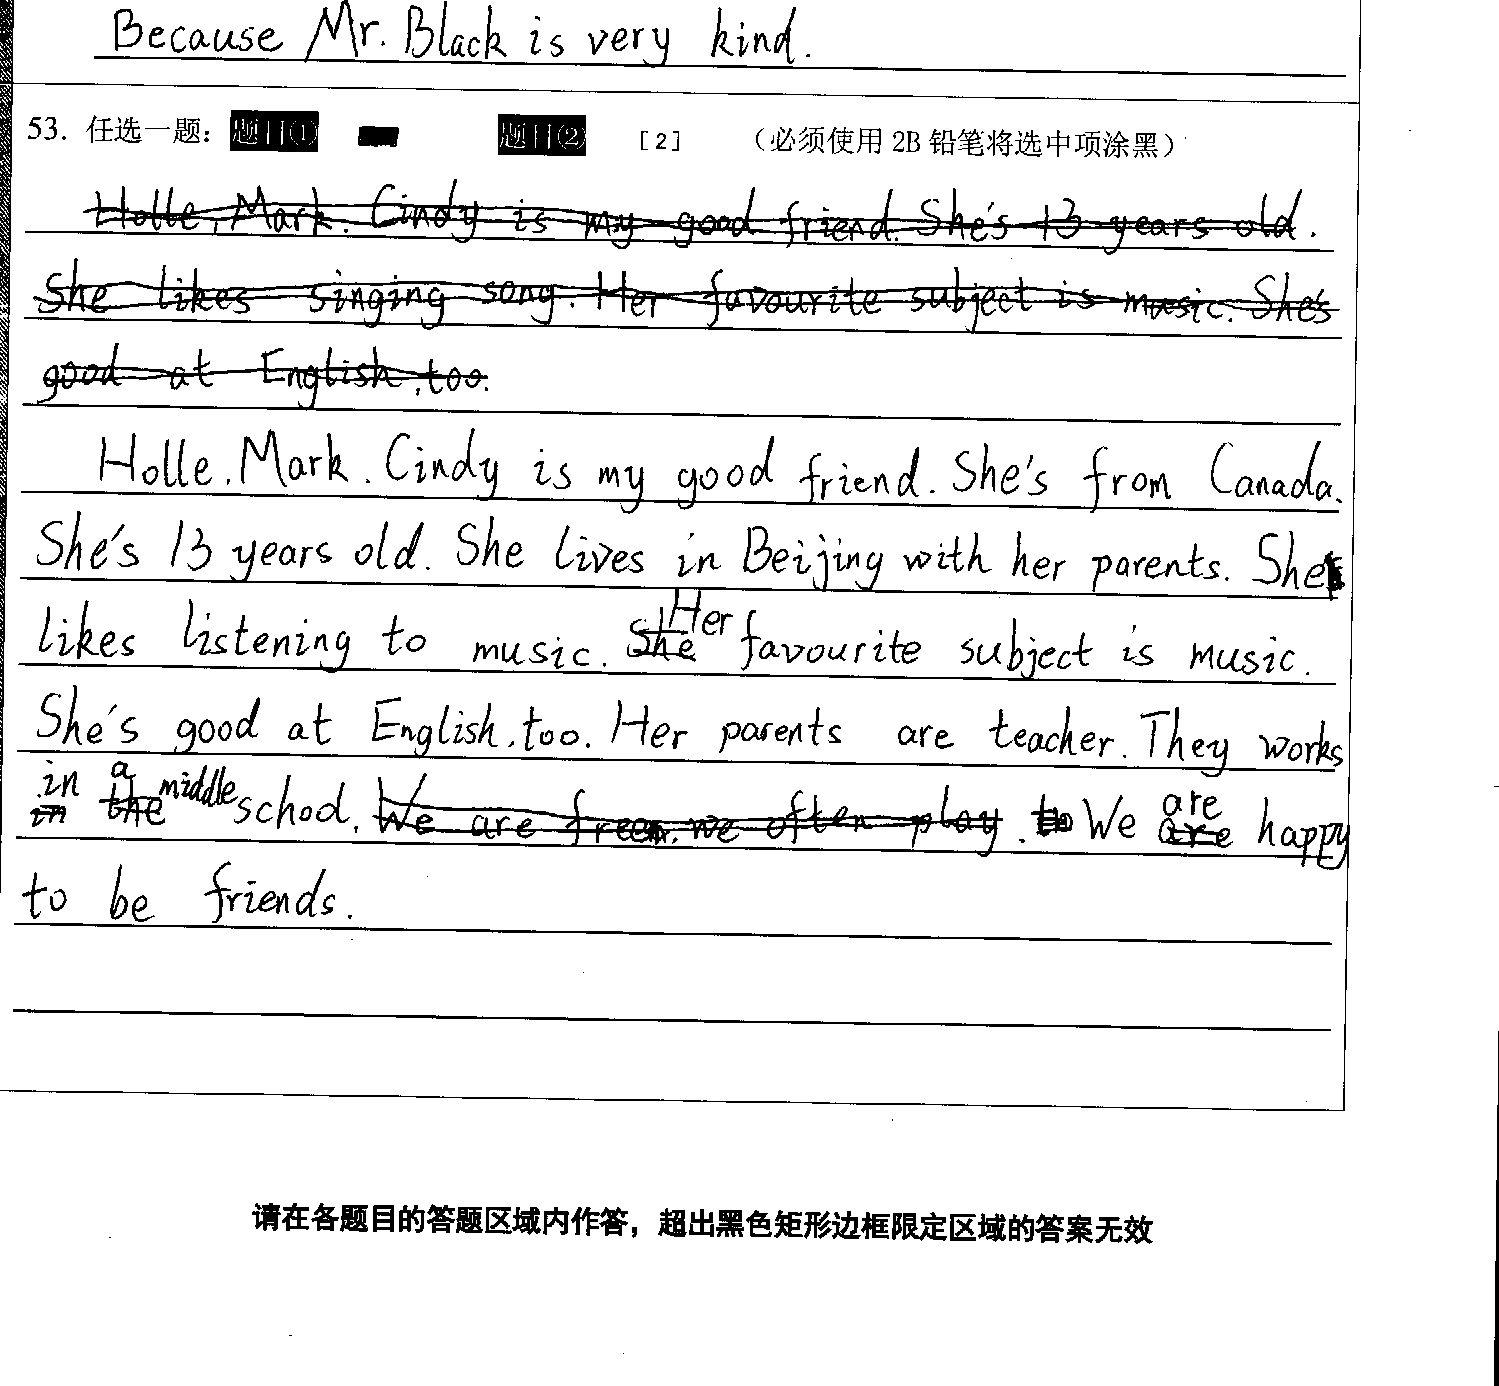 Because Mr. Black is very kind.
53. 任选一题： 题目① 题目② [2] （必须使用 2B 铅笔将选中项涂黑）
Holle, Mark. Cindy is my good friend. She's 13 years old.
She likes singing song. Her favourite subject is music. She's
good at English, too.
Holle, Mark. Cindy is my good friend. She's from Canada.
She's 13 years old. She lives in Beijing with her parents. She
likes listening to music. She Her favourite subject is music.
She's good at English, too. Her parents are teacher. They works
in in the a middle school. We are free, we often play. to We are are happy
to be friends.
请在各题目的答题区域内作答，超出黑色矩形边框限定区域的答案无效